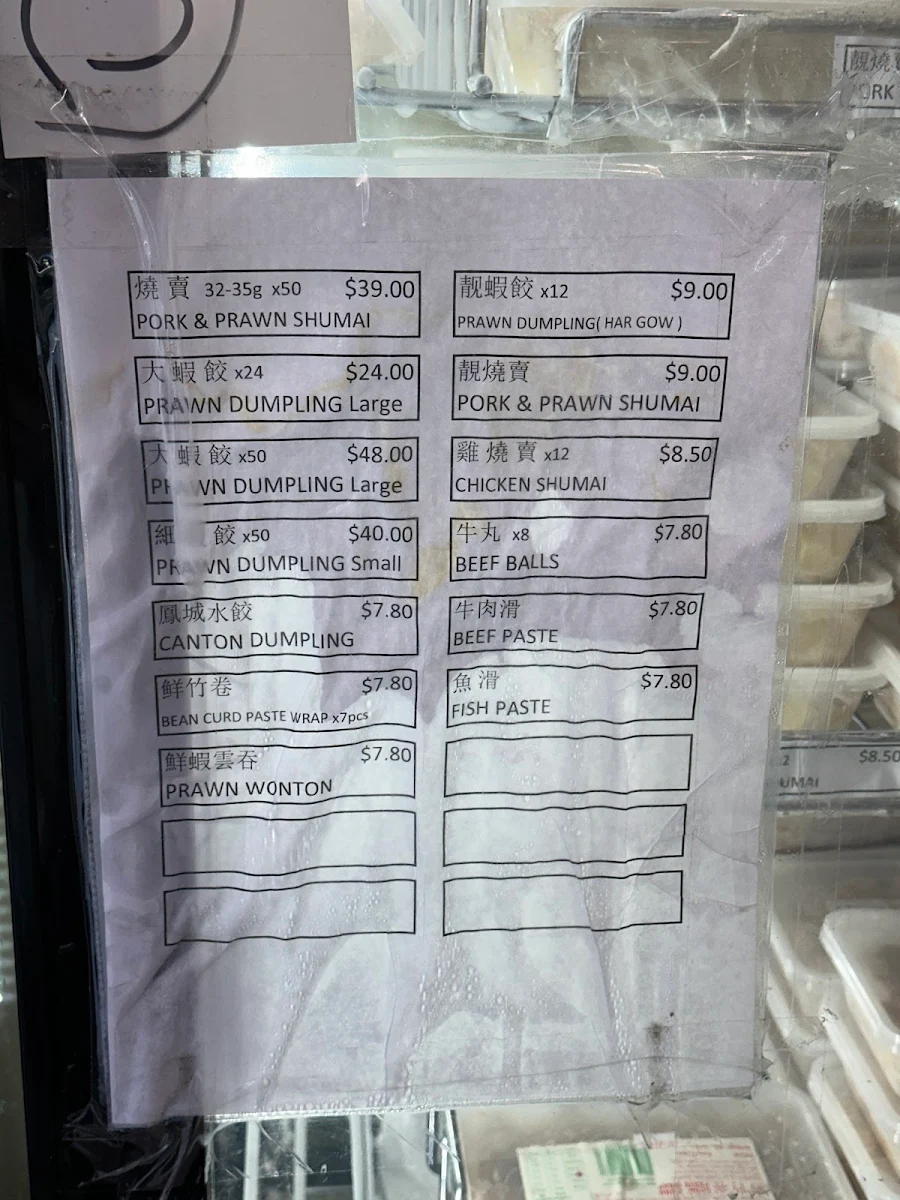 燒賣 32-35g x50 $39.00
PORK & PRAWN SHUMAI
大蝦餃 x24 $24.00
PRAWN DUMPLING Large
大蝦餃 x50 $48.00
PRAWN DUMPLING Large
細 餃 x50 $40.00
PRAWN DUMPLING Small
鳳城水餃 $7.80
CANTON DUMPLING
鮮竹卷 $7.80
BEAN CURD PASTE WRAP x7pcs
鮮蝦雲吞 $7.80
PRAWN WONTON
靓蝦餃 x12 $9.00
PRAWN DUMPLING( HAR GOW )
靚燒賣 $9.00
PORK & PRAWN SHUMAI
雞燒賣 x12 $8.50
CHICKEN SHUMAI
牛丸 x8 $7.80
BEEF BALLS
牛肉滑 $7.80
BEEF PASTE
魚滑 $7.80
FISH PASTE
靚燒
PORK
2 $8.50
UMAI